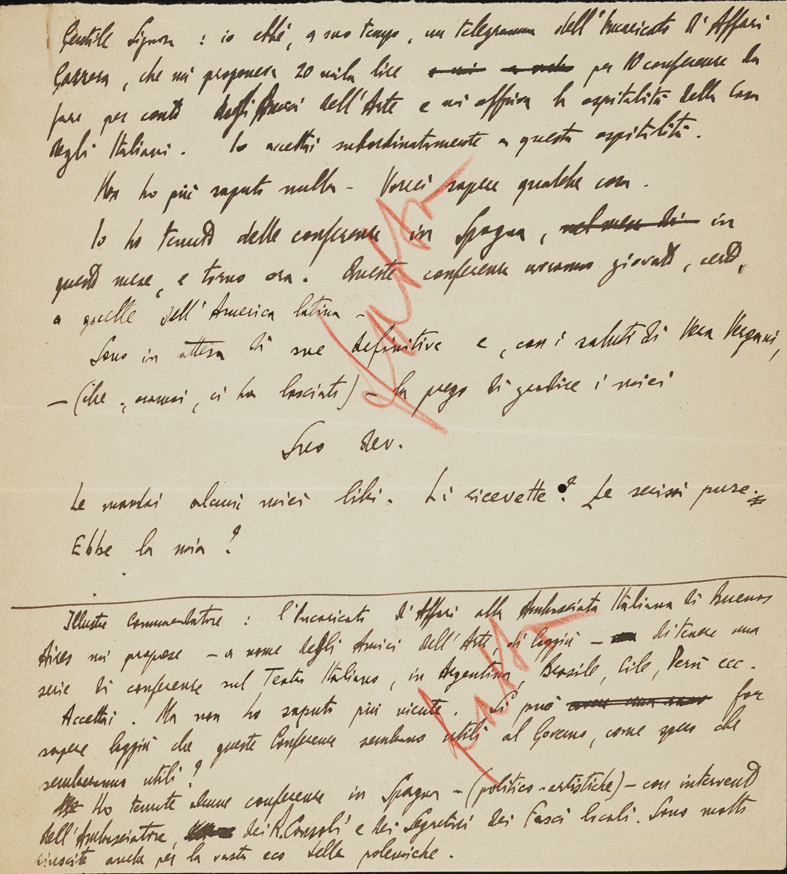 Gentile Signora : io ebbi, a suo tempo, un telegramma dell'Incaricato di Affari
che mi proponeva 20 mila lire per 10 conferenze da
fare per conto degli Amici dell'Arte e mi offriva la ospitalità della Casa
degli Italiani. Io accettai subordinatamente a questa ospitalità.
Non ho più saputo nulla - Vorrei sapere qualche cosa.
Io ho tenuto delle conferenze in Spagna, nel mese di in
questo mese, e torno ora. Queste conferenze avranno giovato, certo,
a quelle dell'America latina -
Sono in attesa di sue definitive e, con i saluti di Vera Vergani,
- (che, oramai, ci ha lasciati) - La prego di gradire i miei
Suo dev.
Le mandai alcuni miei libri. Li ricevette? Le scrissi pure.
Ebbe la mia?
Fatto
Illustre Commendatore : l'Incaricato d'Affari alla Ambasciata Italiana di Buenos
Aires mi propose - a nome degli Amici dell'Arte, di laggiù - di tenere una
serie di conferenze sul Teatro Italiano, in Argentina, Brasile, Cile, Perù ecc.
Accettai. Ma non ho saputo più niente. Si può far
sapere laggiù che queste Conferenze sembrano utili al Governo, come spero che
sembreranno utili?
Ho tenute alcune conferenze in Spagna - (politico-artistiche) - con intervento
dell'Ambasciatore, dei R. Consoli e dei Segretari dei Fasci locali. Sono molto
riuscite anche per la vasta eco delle polemiche.
Fatto